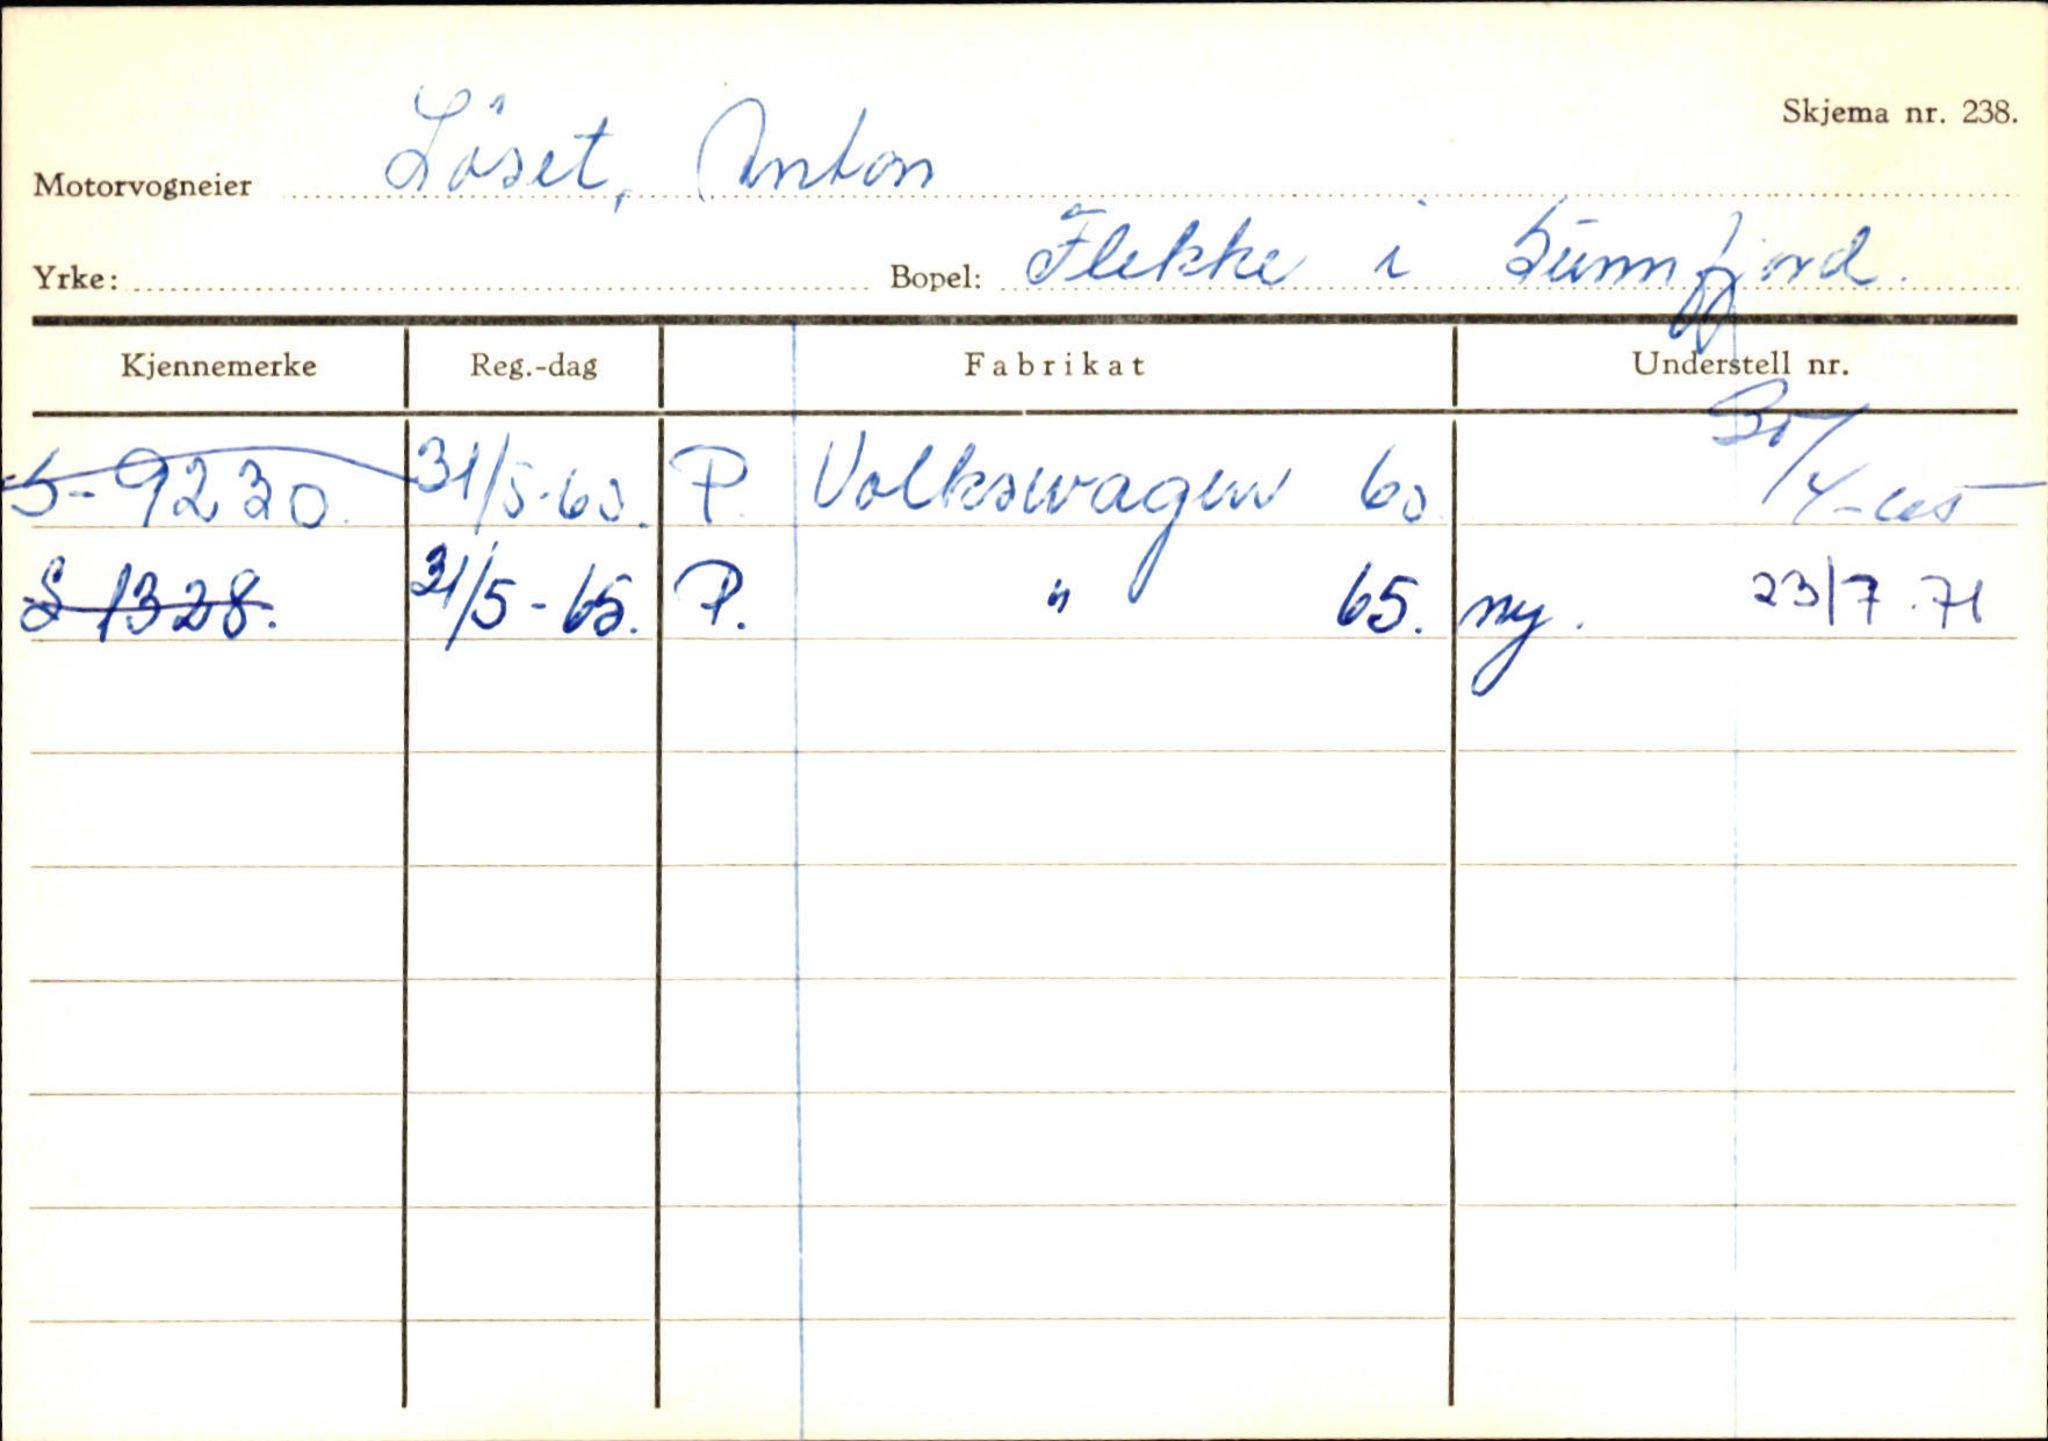 Skjema nr. 238.
Motorvogneier Löset, Anton
Yrke: Bopel: Flekke i Sunnfjord.
Kjennemerke Reg.-dag Fabrikat Understell nr.
S-9230. 31/5-63. P. Volkswagen 60 30/4-65
S 1328. 31/5-65. P. " 65. ny. 23/7.71